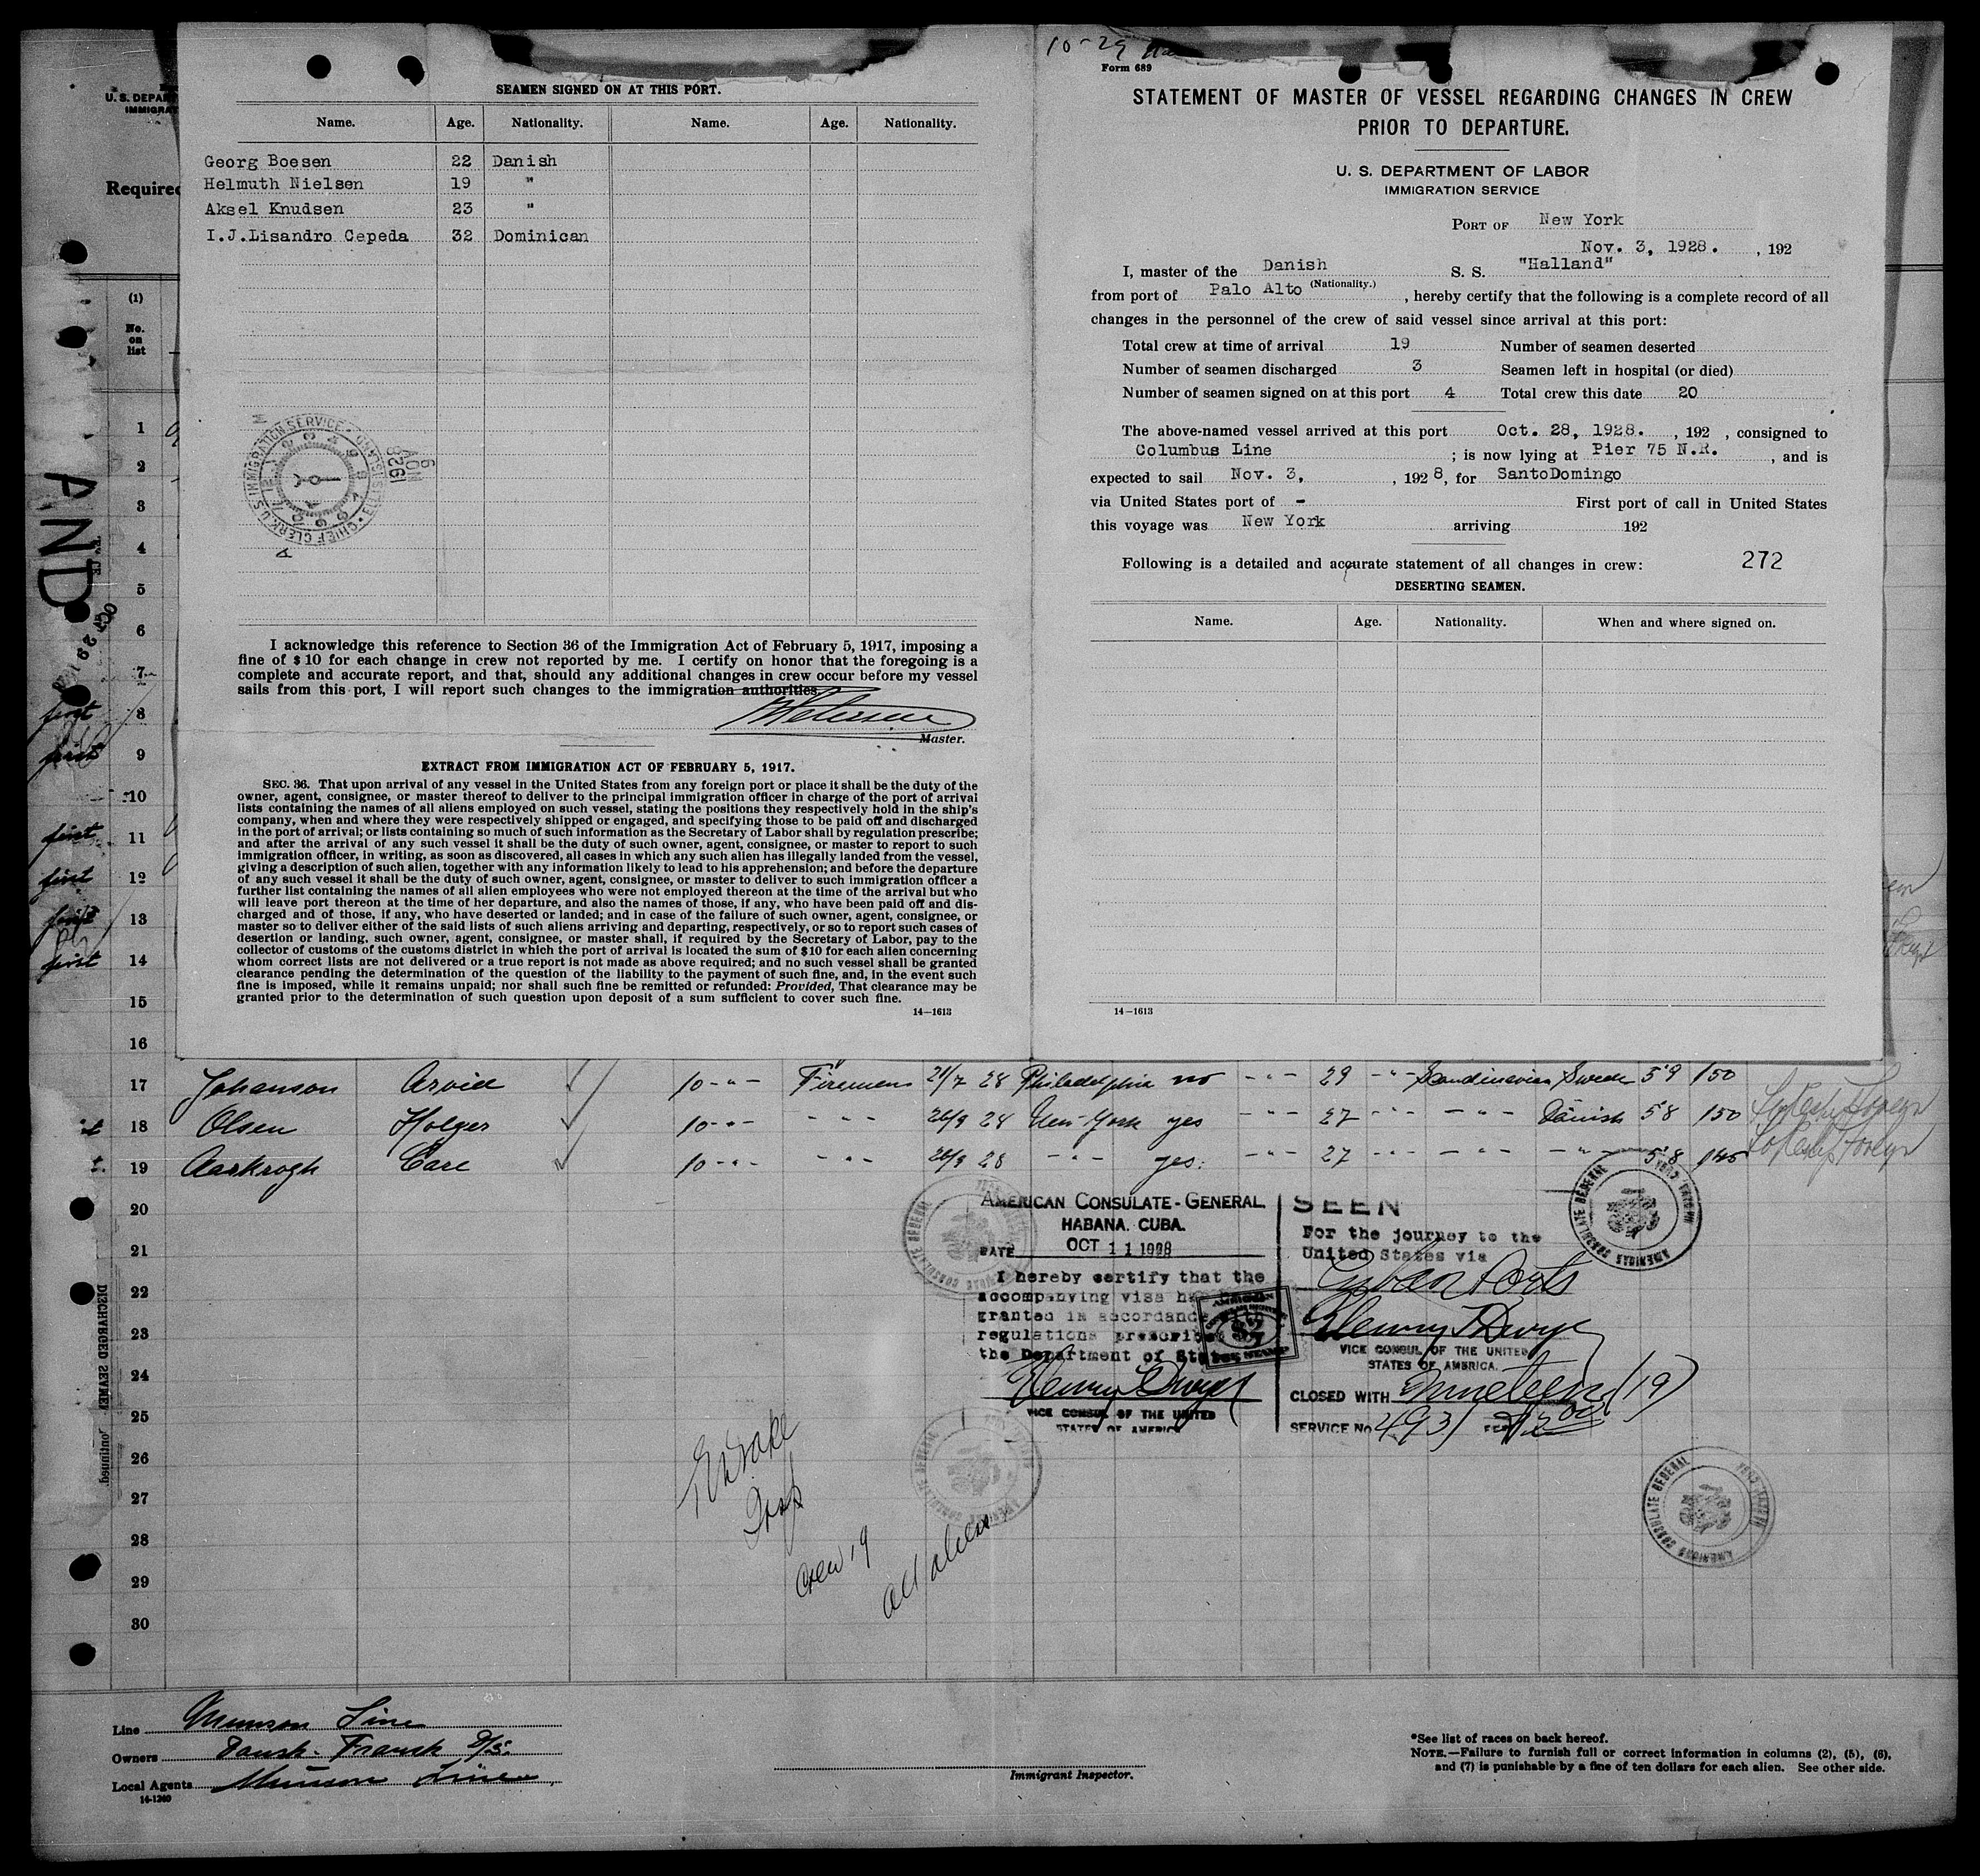 U. S. DEPAR
IMMIGRAT
Required
(1)
No.
on
list
SEAMEN SIGNED ON AT THIS PORT.
Name. Age. Nationality. Name. Age. Nationality.
Georg Boesen 22 Danish
Helmuth Nielsen 19 "
Aksel Knudsen 23 "
I.J.Lisandro Cepeda 32 Dominican
I acknowledge this reference to Section 36 of the Immigration Act of February 5, 1917, imposing a
fine of $10 for each change in crew not reported by me. I certify on honor that the foregoing is a
complete and accurate report, and that, should any additional changes in crew occur before my vessel
sails from this port, I will report such changes to the immigration authorities
Master.
EXTRACT FROM IMMIGRATION ACT OF FEBRUARY 5, 1917.
SEC. 36. That upon arrival of any vessel in the United States from any foreign port or place it shall be the duty of the
owner, agent, consignee, or master thereof to deliver to the principal immigration officer in charge of the port of arrival
lists containing the names of all aliens employed on such vessel, stating the positions they respectively hold in the ship's
company, when and where they were respectively shipped or engaged, and specifying those to be paid off and discharged
in the port of arrival; or lists containing so much of such information as the Secretary of Labor shall by regulation prescribe;
and after the arrival of any such vessel it shall be the duty of such owner, agent, consignee, or master to report to such
immigration officer, in writing, as soon as discovered, all cases in which any such alien has illegally landed from the vessel,
giving a description of such alien, together with any information likely to lead to his apprehension; and before the departure
of any such vessel it shall be the duty of such owner, agent, consignee, or master to deliver to such immigration officer a
further list containing the names of all alien employees who were not employed thereon at the time of the arrival but who
will leave port thereon at the time of her departure, and also the names of those, if any, who have been paid off and dis-
charged and of those, if any, who have deserted or landed; and in case of the failure of such owner, agent, consignee, or
master so to deliver either of the said lists of such aliens arriving and departing, respectively, or so to report such cases of
desertion or landing, such owner, agent, consignee, or master shall, if required by the Secretary of Labor, pay to the
collector of customs of the customs district in which the port of arrival is located the sum of $10 for each alien concerning
whom correct lists are not delivered or a true report is not made as above required; and no such vessel shall be granted
clearance pending the determination of the question of the liability to the payment of such fine, and, in the event such
fine is imposed, while it remains unpaid; nor shall such fine be remitted or refunded: Provided, That clearance may be
granted prior to the determination of such question upon deposit of a sum sufficient to cover such fine.
14—1613
10-29
Form 689
STATEMENT OF MASTER OF VESSEL REGARDING CHANGES IN CREW
PRIOR TO DEPARTURE.
U. S. DEPARTMENT OF LABOR
IMMIGRATION SERVICE
PORT OF New York
Nov. 3, 1928. , 192
I, master of the Danish S. S. "Halland"
(Nationality.)
from port of Palo Alto , hereby certify that the following is a complete record of all
changes in the personnel of the crew of said vessel since arrival at this port:
Total crew at time of arrival 19 Number of seamen deserted
Number of seamen discharged 3 Seamen left in hospital (or died)
Number of seamen signed on at this port 4 Total crew this date 20
The above-named vessel arrived at this port Oct. 28, 1928. , 192 , consigned to
Columbus Line ; is now lying at Pier 75 N.R. , and is
expected to sail Nov. 3, , 192 8, for SantoDomingo
via United States port of - First port of call in United States
this voyage was New York arriving 192
Following is a detailed and accurate statement of all changes in crew: 272
DESERTING SEAMEN.
Name. Age. Nationality. When and where signed on.
14—1613
1
2
3
4
5
6
7
first 8
first 9
10
first 11
first 12
first 13
first 14
15
16
17 Johanson Arvid 10 -"- Firemen 21/7 28 Philadelphia no -"- 29 -"- Scandinavian Swede 5'9 150
18 Olsen Holger 10 -"- -"- 26/9 28 New-York yes -"- 27 -"- -"- Danish 5'8 150
19 Aarkrogh Carl 10 -"- -"- 26/9 28 -"- yes. -"- 27 -"- -"- -"- 5'8 145
20
21
22
23
24
25
26
27
28
29
30
AMERICAN CONSULATE-GENERAL
HABANA. CUBA.
DATE OCT 11 1928
I hereby certify that the
accompanying visa has been
granted in accordance
regulations prescribe
the Department of State
Henry T Dwyer
VICE CONSUL OF THE UNITED
STATES OF AMERICA
SEEN
For the journey to the
United States via
Cuban Ports
Henry T Dwyer
VICE CONSUL OF THE UNITED
STATES OF AMERICA.
CLOSED WITH Nineteen (19)
SERVICE No 4931
Insp
Crew 19
all aliens
DISCHARGED SEAMEN
Line Munson Line
Owners Dansk-Fransk D/S.
Local Agents Munson Line
14-1240
Immigrant Inspector.
*See list of races on back hereof.
NOTE.—Failure to furnish full or correct information in columns (2), (5), (6),
and (7) is punishable by a fine of ten dollars for each alien. See other side.